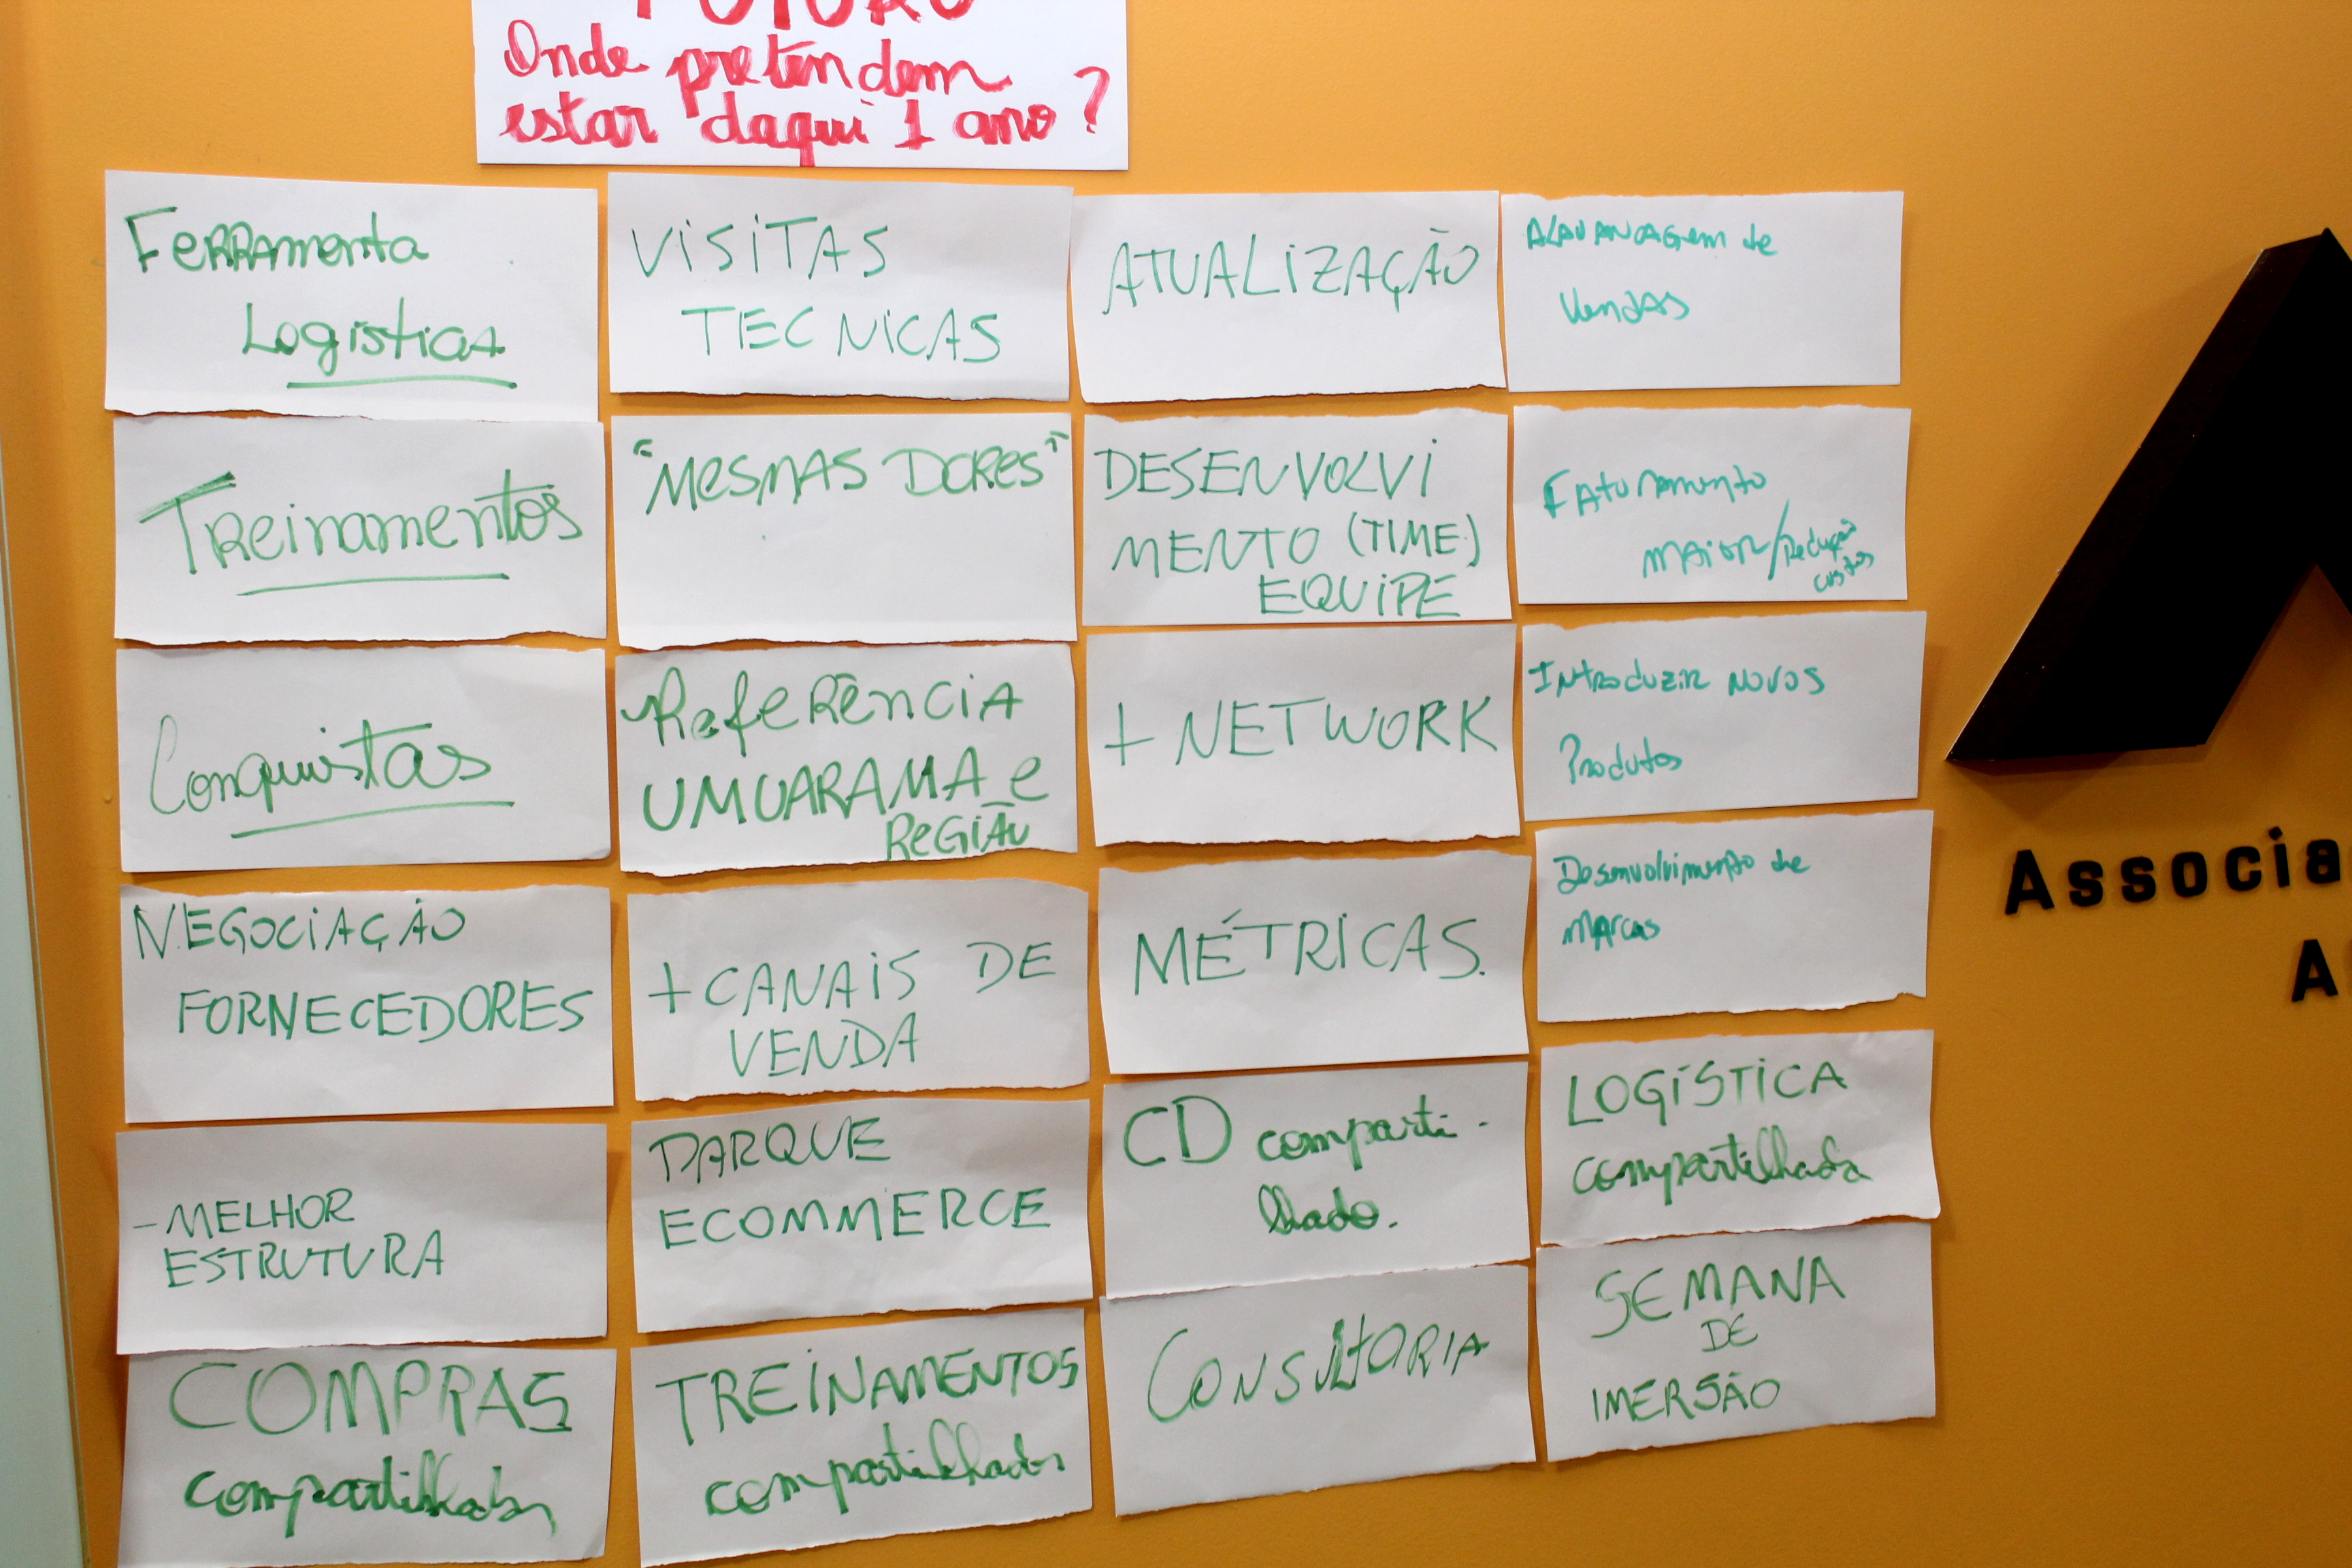 FUTURO
Onde pretendem
estar daqui 1 ano ?
Ferramenta
Logísticas
VISITAS
TECNICAS
ATUALIZAÇÃO
Alavancagem de
Vendas
Treinamentos
"MESMAS DORES"
DESENVOLVI
MENTO (TIME)
EQUIPE
Faturamento
maior/Redução
custos
Conquistas
Referência
UMUARAMA e
REGIÃO
+ NETWORK
Introduzir novos
Produtos
NEGOCIAÇÃO
FORNECEDORES
+ CANAIS DE
VENDA
MÉTRICAS.
Desenvolvimento de
marcas
- MELHOR
ESTRUTURA
PARQUE
ECOMMERCE
CD comparti-
lhado.
LOGÍSTICA
compartilhada
COMPRAS
compartilhadas
TREINAMENTOS
compartilhados
CONSULTORIA
SEMANA
DE
IMERSÃO
Associa
A